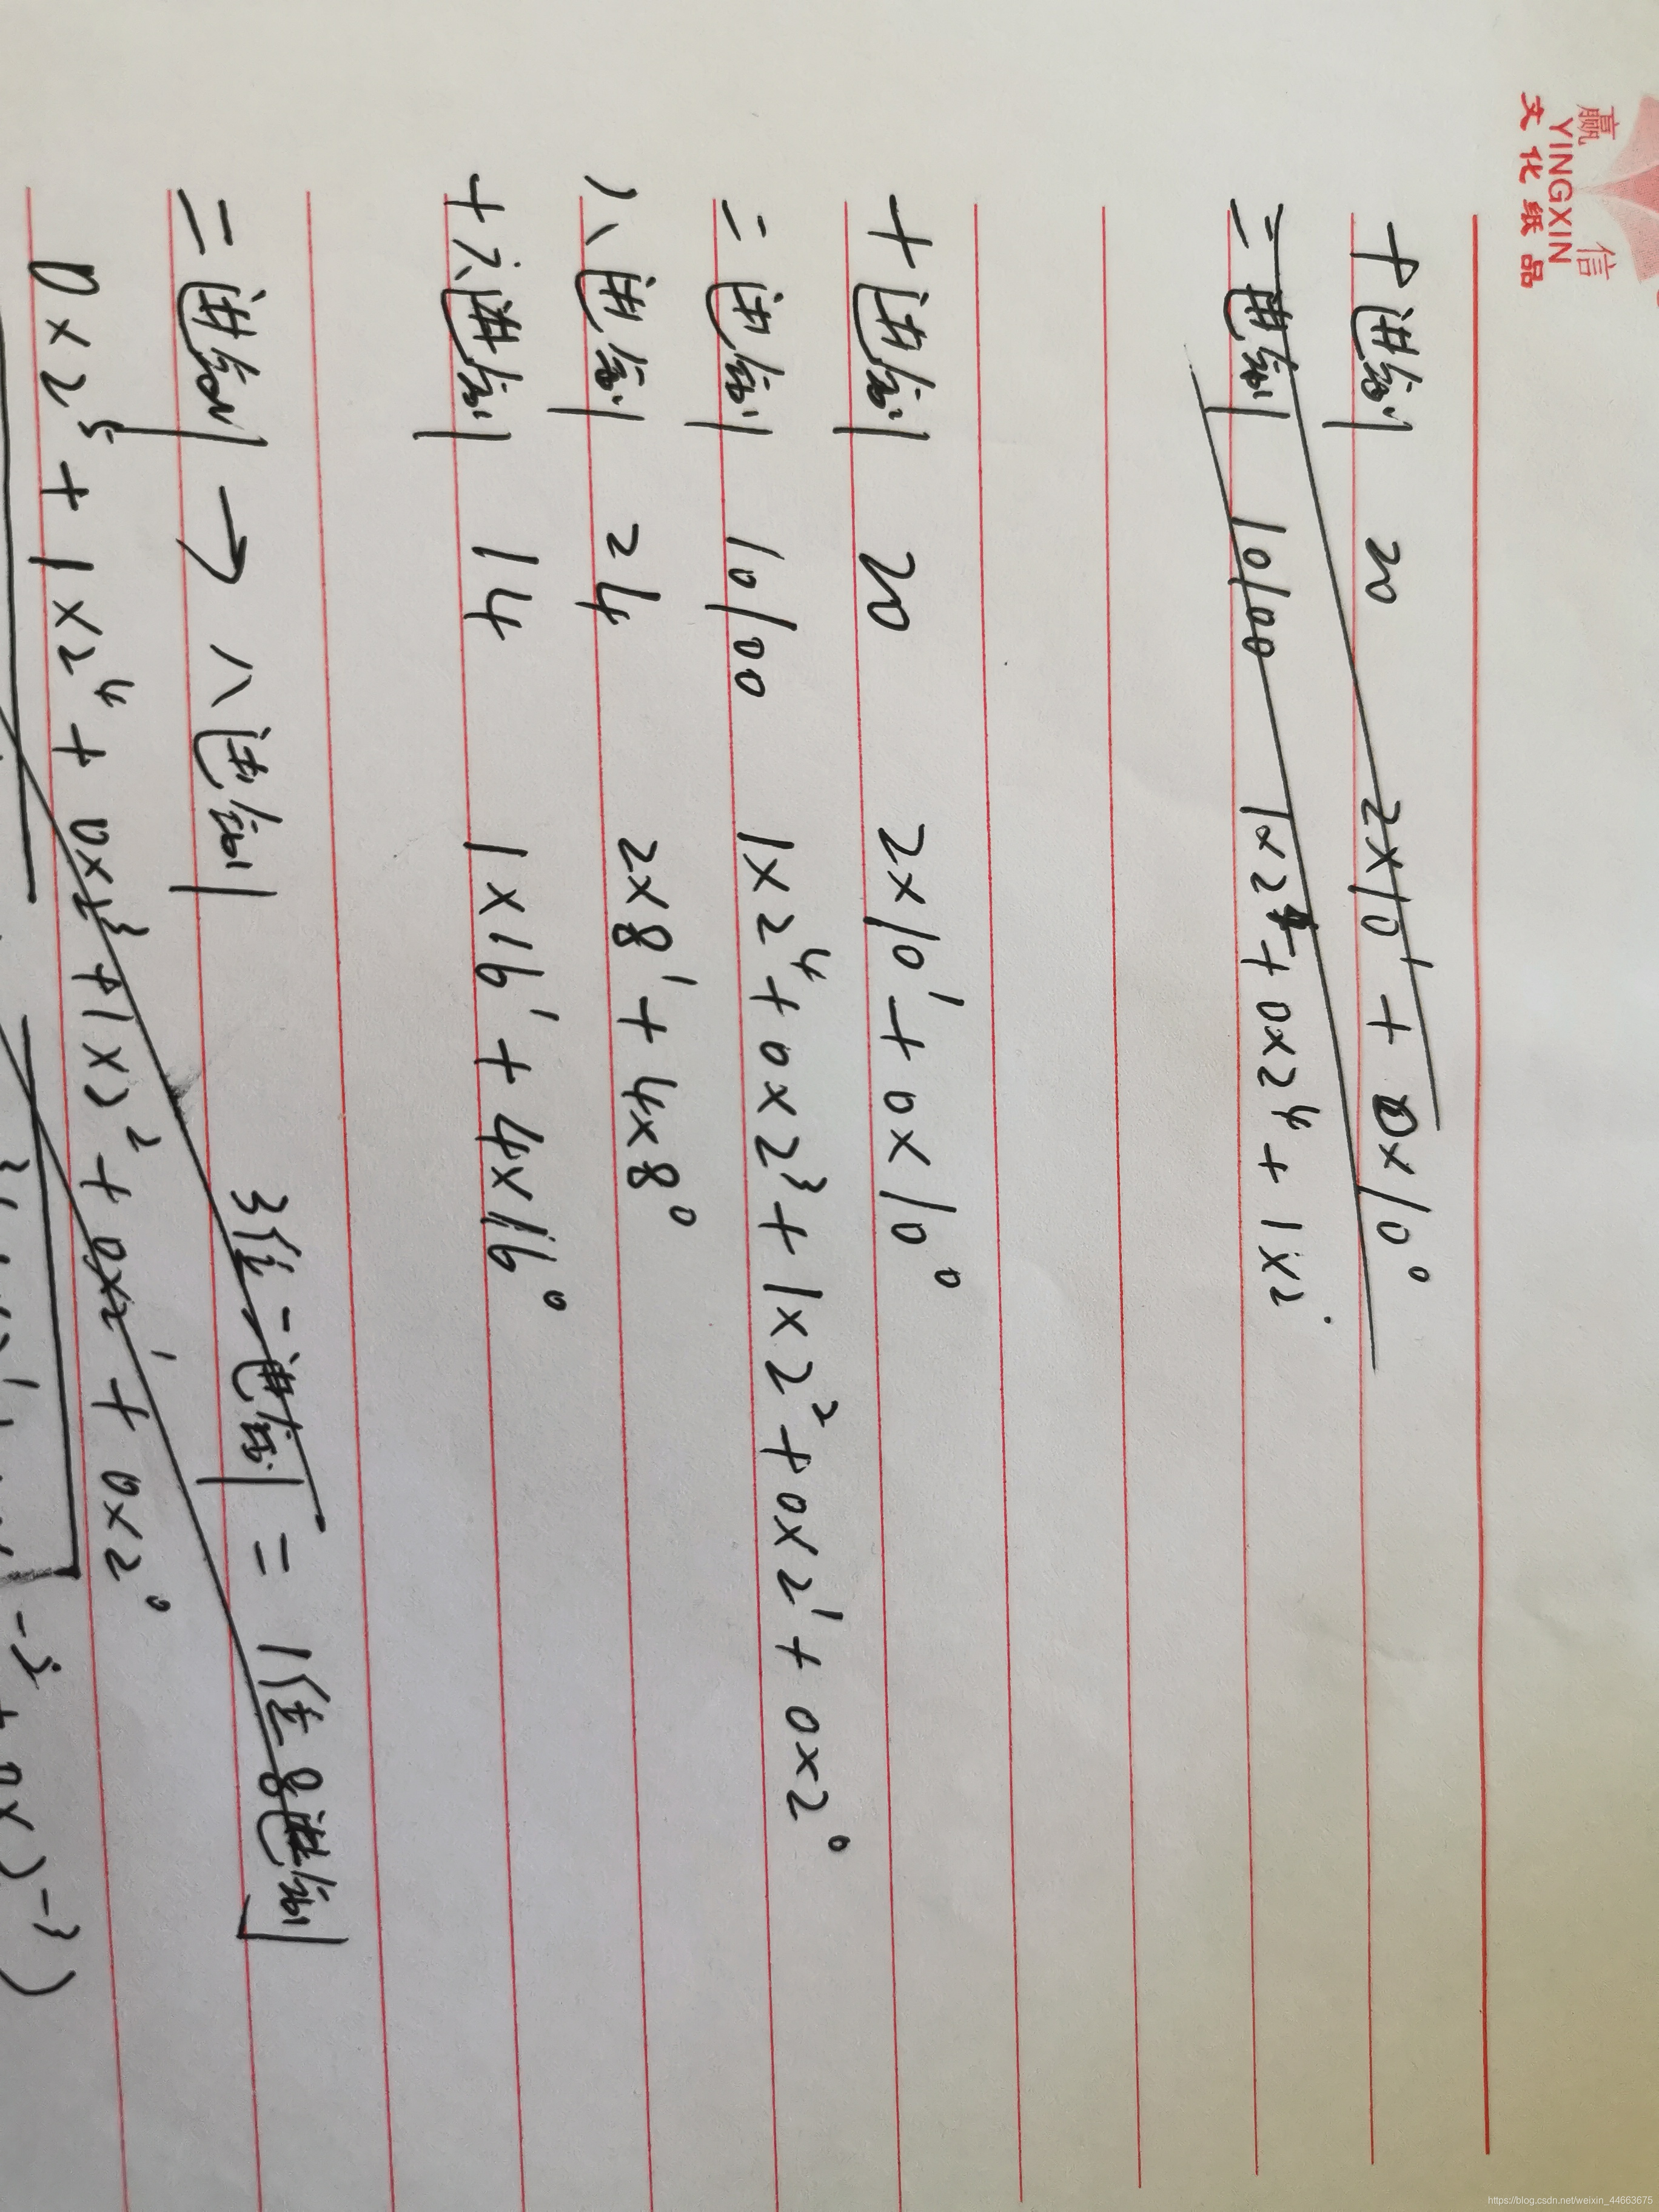 赢信
YINGXIN
文化纸品
十进制 20 2×10¹ + 0×10⁰
二进制 10100 1×2⁴ + 0×2⁴ + 1×2
十进制 20 2×10¹ + 0×10⁰
二进制 10100 1×2⁴ + 0×2³ + 1×2² + 0×2¹ + 0×2⁰
八进制 24 2×8¹ + 4×8⁰
十六进制 14 1×16¹ + 4×16⁰
二进制 → 八进制 3位二进制 = 1位8进制
0×2⁵ + 1×2⁴ + 0×2³ + 1×2² + 0×2¹ + 0×2⁰
https://blog.csdn.net/weixin_44663675